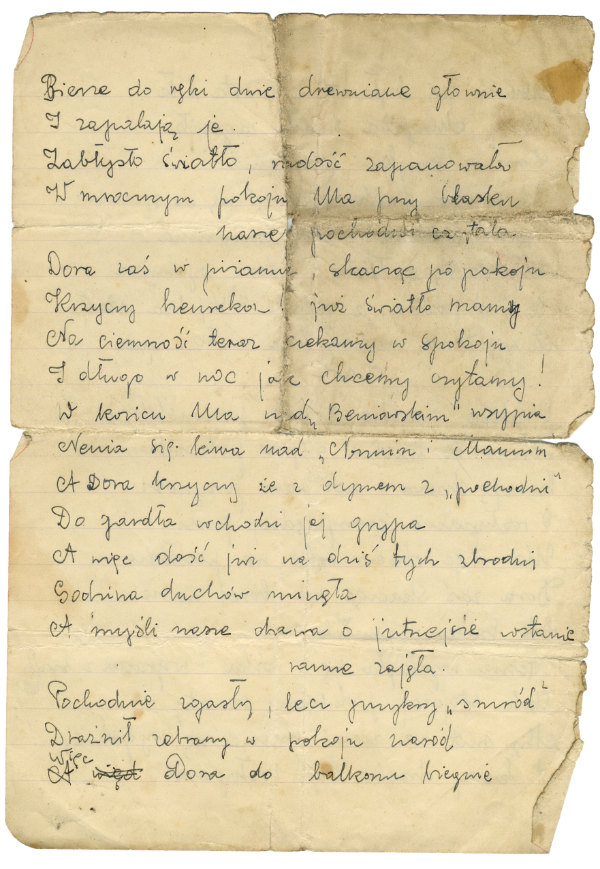 Bierze do ręki dwie drewniane głownie
I zapalają je.
Zabłysło światło, radość zapanowała
W mrocznym pokoju Ula przy blasku
naszej pochodni czytała
Dora zaś w piżamie, skacząc po pokoju
Krzyczy heureka! już światło mamy
Na ciemność teraz czekamy w spokoju
I długo w noc jak chcemy czytamy!
W kocicu Ula nad „Beniowskim" wsypia
Niunia się kiwa nad „Panem i
A Dora krzyczy że z dymem z „pochodni"
Do gardła wchodzi jej grypa
A więc dość już na dziś tych zbrodni
Godzina duchów minęła
A myśli nasze obawa o jutrzejsze wstanie
ranne zajęła.
Pochodnie zgasły, leci przykry „smród"
Drażnił zebrany w pokoju naród
Więc
A Dora do balkonu biegnie